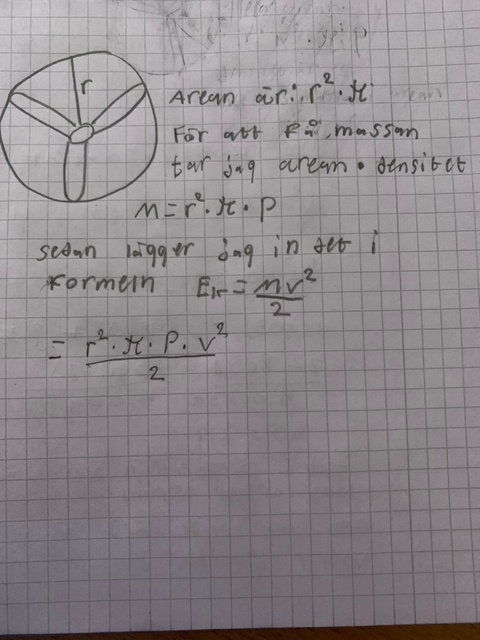 r
Arean är: r² · π
För att få massan
tar jag arean · densitet
m = r² · π · ρ
sedan lägger jag in det i
formeln Eₖ = mv²/2
= r² · π · ρ · v²/2